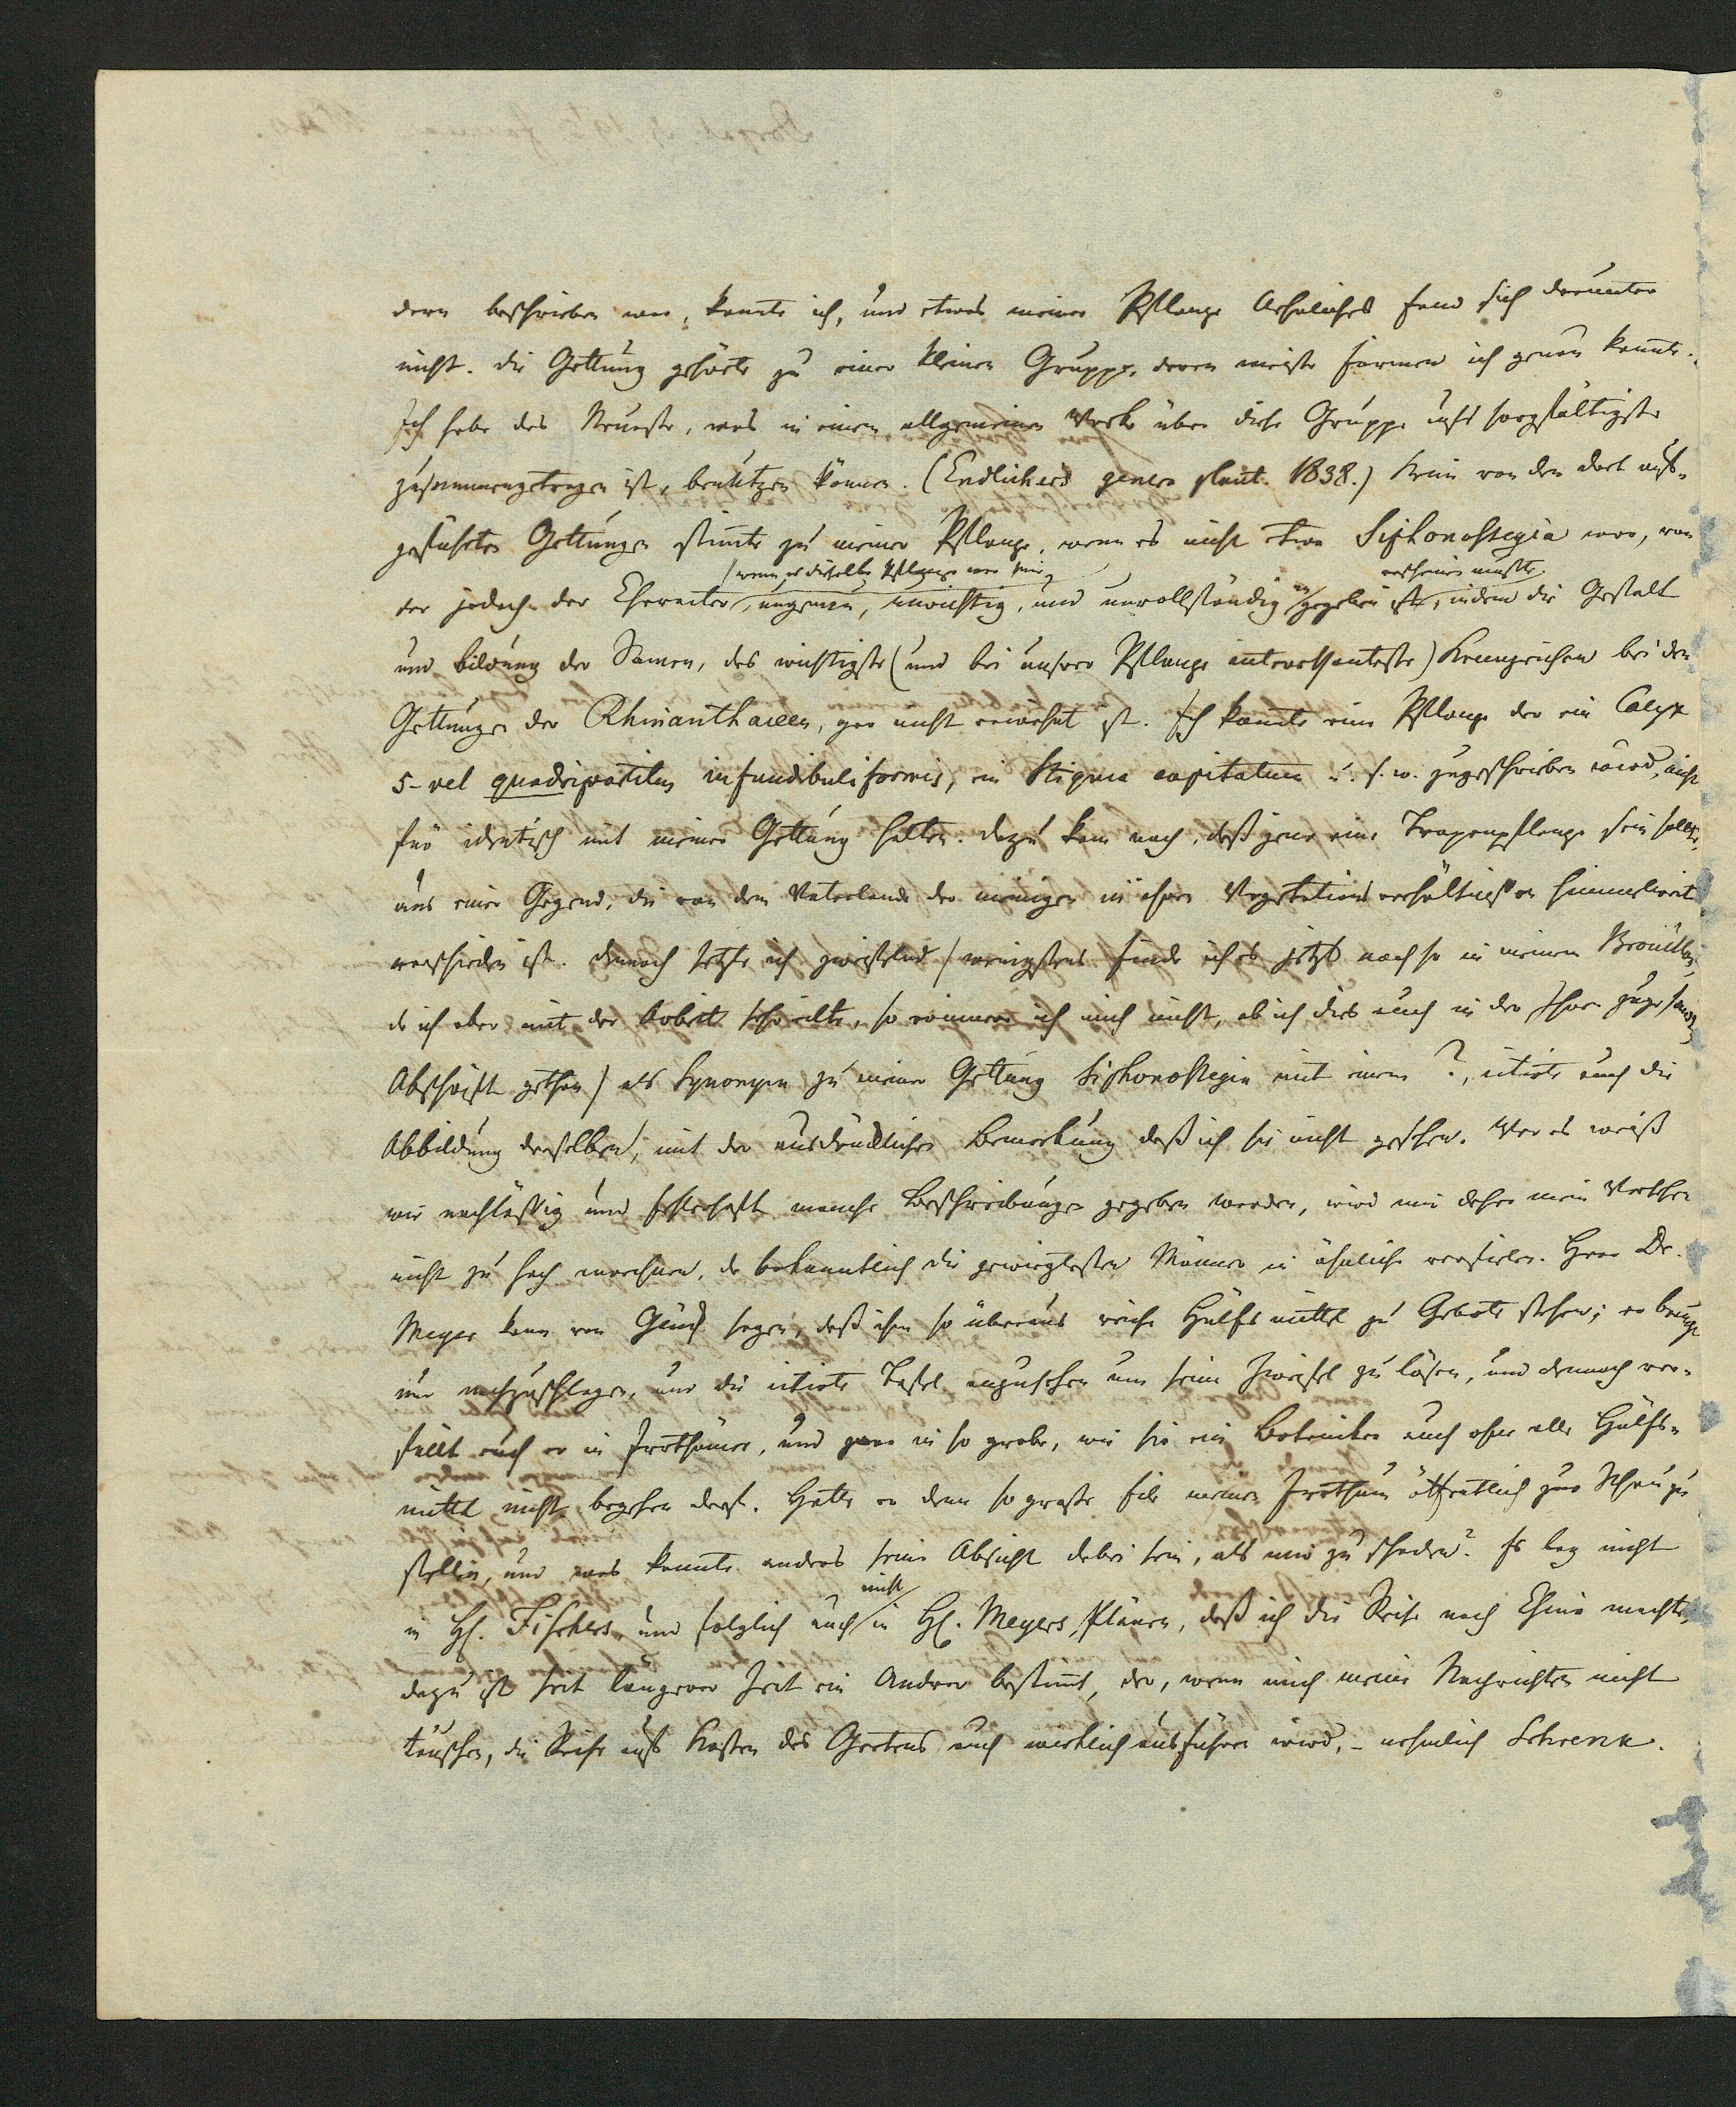 dern beschrieben war, kannte ich, und etwas meiner Pflanze Aehnliches fand sich darunter
nicht. Die Gattung gehörte zu einer kleinen Gruppe, deren meiste Formen ich genau kannte.
Ich habe das Neueste, was in einem allgemeinen Werke über diese Gruppe aufs sorgfältigste
zusammengetragen ist, benützen können. (Endlichers genera plant. 1838.) Keine von den dort auf-
geführten Gattungen stimte zu meiner Pflanze, wenn es nicht etwa Siphonostegia war, von
(wenn es dieselbe Pflanze war wie erscheinen musste.
der jedoch der Character, ungenau, unrichtig, und unvollständig angegeben ist, indem die Gestalt
und Bildung der Samen, das wichtigste (und bei unserer Pflanze interessanteste) Kennzeichen bei den
Gattungen der Rhinanthaceen, gar nicht erwähnt ist. Ich konnte eine Pflanze der ein Calyx
5-vel quadripartitus infundibuliformis, ein Stigma capitatum u. s. w. zugeschrieben wird, nicht
für identisch mit meiner Gattung halten. Dazu kam noch, daß jene eine Tropenpflanze sein sollte,
aus einer Gegend, die von dem Vaterlande der meinigen in ihren Vegetationsverhältnissen himmelweit
verschieden ist. Dennoch setzte ich zweifelnd (wenigstens finde ich es jetzt noch so in meinem Brouillon,
da ich aber mit der Arbeit sehr eilte, so erinnere ich mich nicht, ob ich dies auch in der Ihnen zugesandten
Abschrift gethan) als Synonym zu meiner Gattung Siphonostegia mit einem ?, citirte auch die
Abbildung derselben, mit der ausdrücklichen Bemerkung daß ich sie nicht gesehen. Wer es weiß
wie nachläßig und fehlerhaft manche Beschreibungen gegeben werden, wird mir daher mein Versehen
nicht zu hoch anrechnen, da bekanntlich die gewiegtesten Männer in ähnliche verfielen. Herr Dr.
Meyer kann von Glück sagen, daß ihm so überaus reiche Hülfsmittel zu Gebote stehen; er brauchte
nur nachzuschlagen, und die citirte Tafel anzusehen um seine Zweifel zu lösen, und dennoch ver-
fällt auch er in Irrthümer, und zwar in so grobe, wie sie ein Botaniker auch ohne alle Hülfs-
mittel nicht begehen darf. Hatte er denn so grosse Eile meinen Irrthum öffentlich zur Schau zu
stellen, und was konnte anders seine Absicht dabei sein, als mir zu schaden? Es lag nicht
in H. Fischers, und folglich auch nicht in H. Meyers Plänen, daß ich die Reise nach China machte,
dazu ist seit längerer Zeit ein Anderer bestimt, der, wenn mich meine Nachrichten nicht
täuschen, die Reise auf Kosten des Gartens auch wirklich ausführen wird, - nehmlich Schrenk.